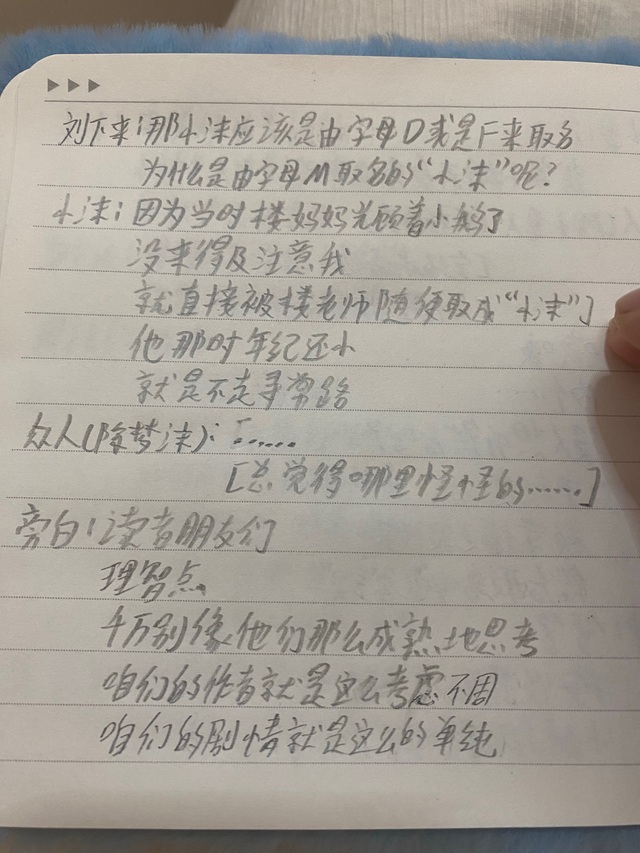 刘下来：那小沫应该是由字母D或是F来取名
为什么是由字母M取名的“小沫”呢？
小沫：因为当时楼妈妈光顾着小了
没来得及注意我
就直接被楼老师随便取成“小沫”]
他那时年纪还小
就是不走寻常路
众人(除梦沫)：[......
[总觉得哪里怪怪的......]
旁白：读者朋友们
理智点
千万别像他们那么成熟地思考
咱们的作者就是这么考虑不周
咱们的剧情就是这么的单纯